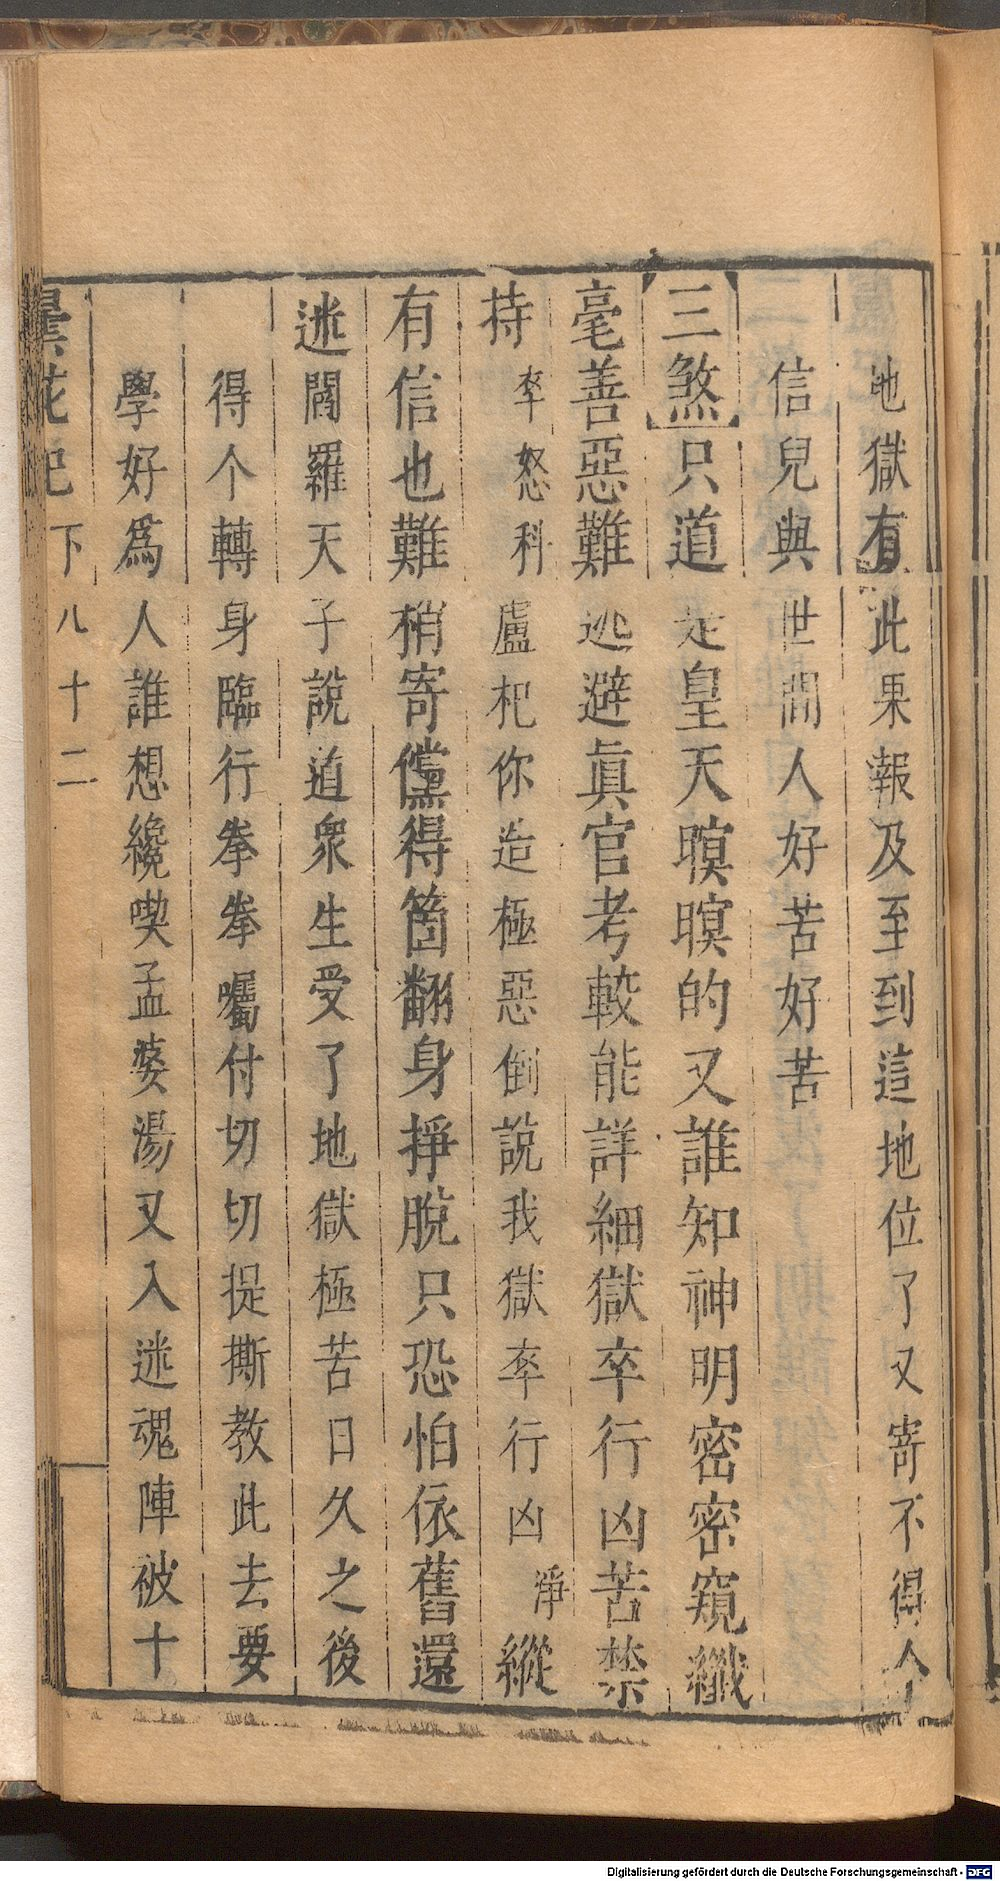 地獄有此果報及至到這地位了又寄不得个
信兒與世間人好苦好苦
三煞只道是皇天暝暝的又誰知神明密密窺纖
毫善惡難逃避眞官考較能詳細獄卒行凶苦禁
持卒怒科盧杞你造極惡倒說我獄卒行凶淨縱
有信也難稍寄儻得箇翻身掙脫只恐怕依舊還
迷閻羅天子說道衆生受了地獄極苦日久之後
得个轉身臨行拳拳囑付切切提撕教此去要
學好爲人誰想纔喫孟婆湯又入迷魂陣被十
曇花記下八十二
Digitalisierung gefördert durch die Deutsche Forschungsgemeinschaft - DFG